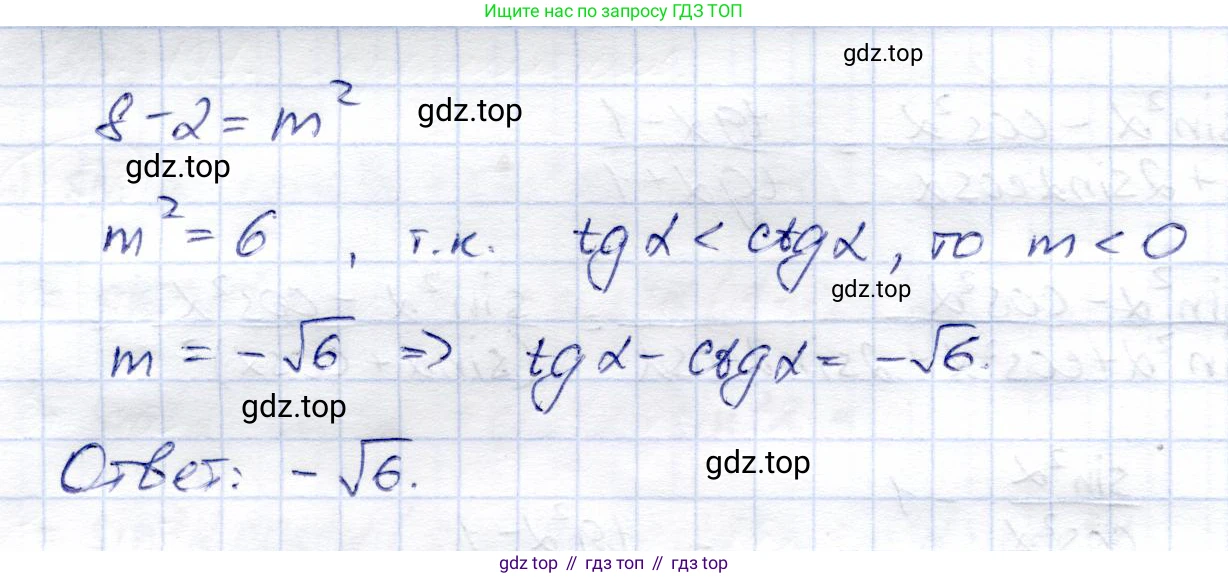 Ищите нас по запросу ГДЗ ТОП
gdz.top
8 - 2 = m²
gdz.top
gdz.top
m² = 6, т.к. tg α < ctg α, то m < 0
gdz.top
m = -√6 => tg α - ctg α = -√6.
gdz.top
Ответ: -√6.
gdz.top
gdz.top // гдз топ // гдз top